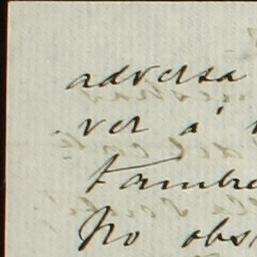 adversa
ver á
tambie
No obs